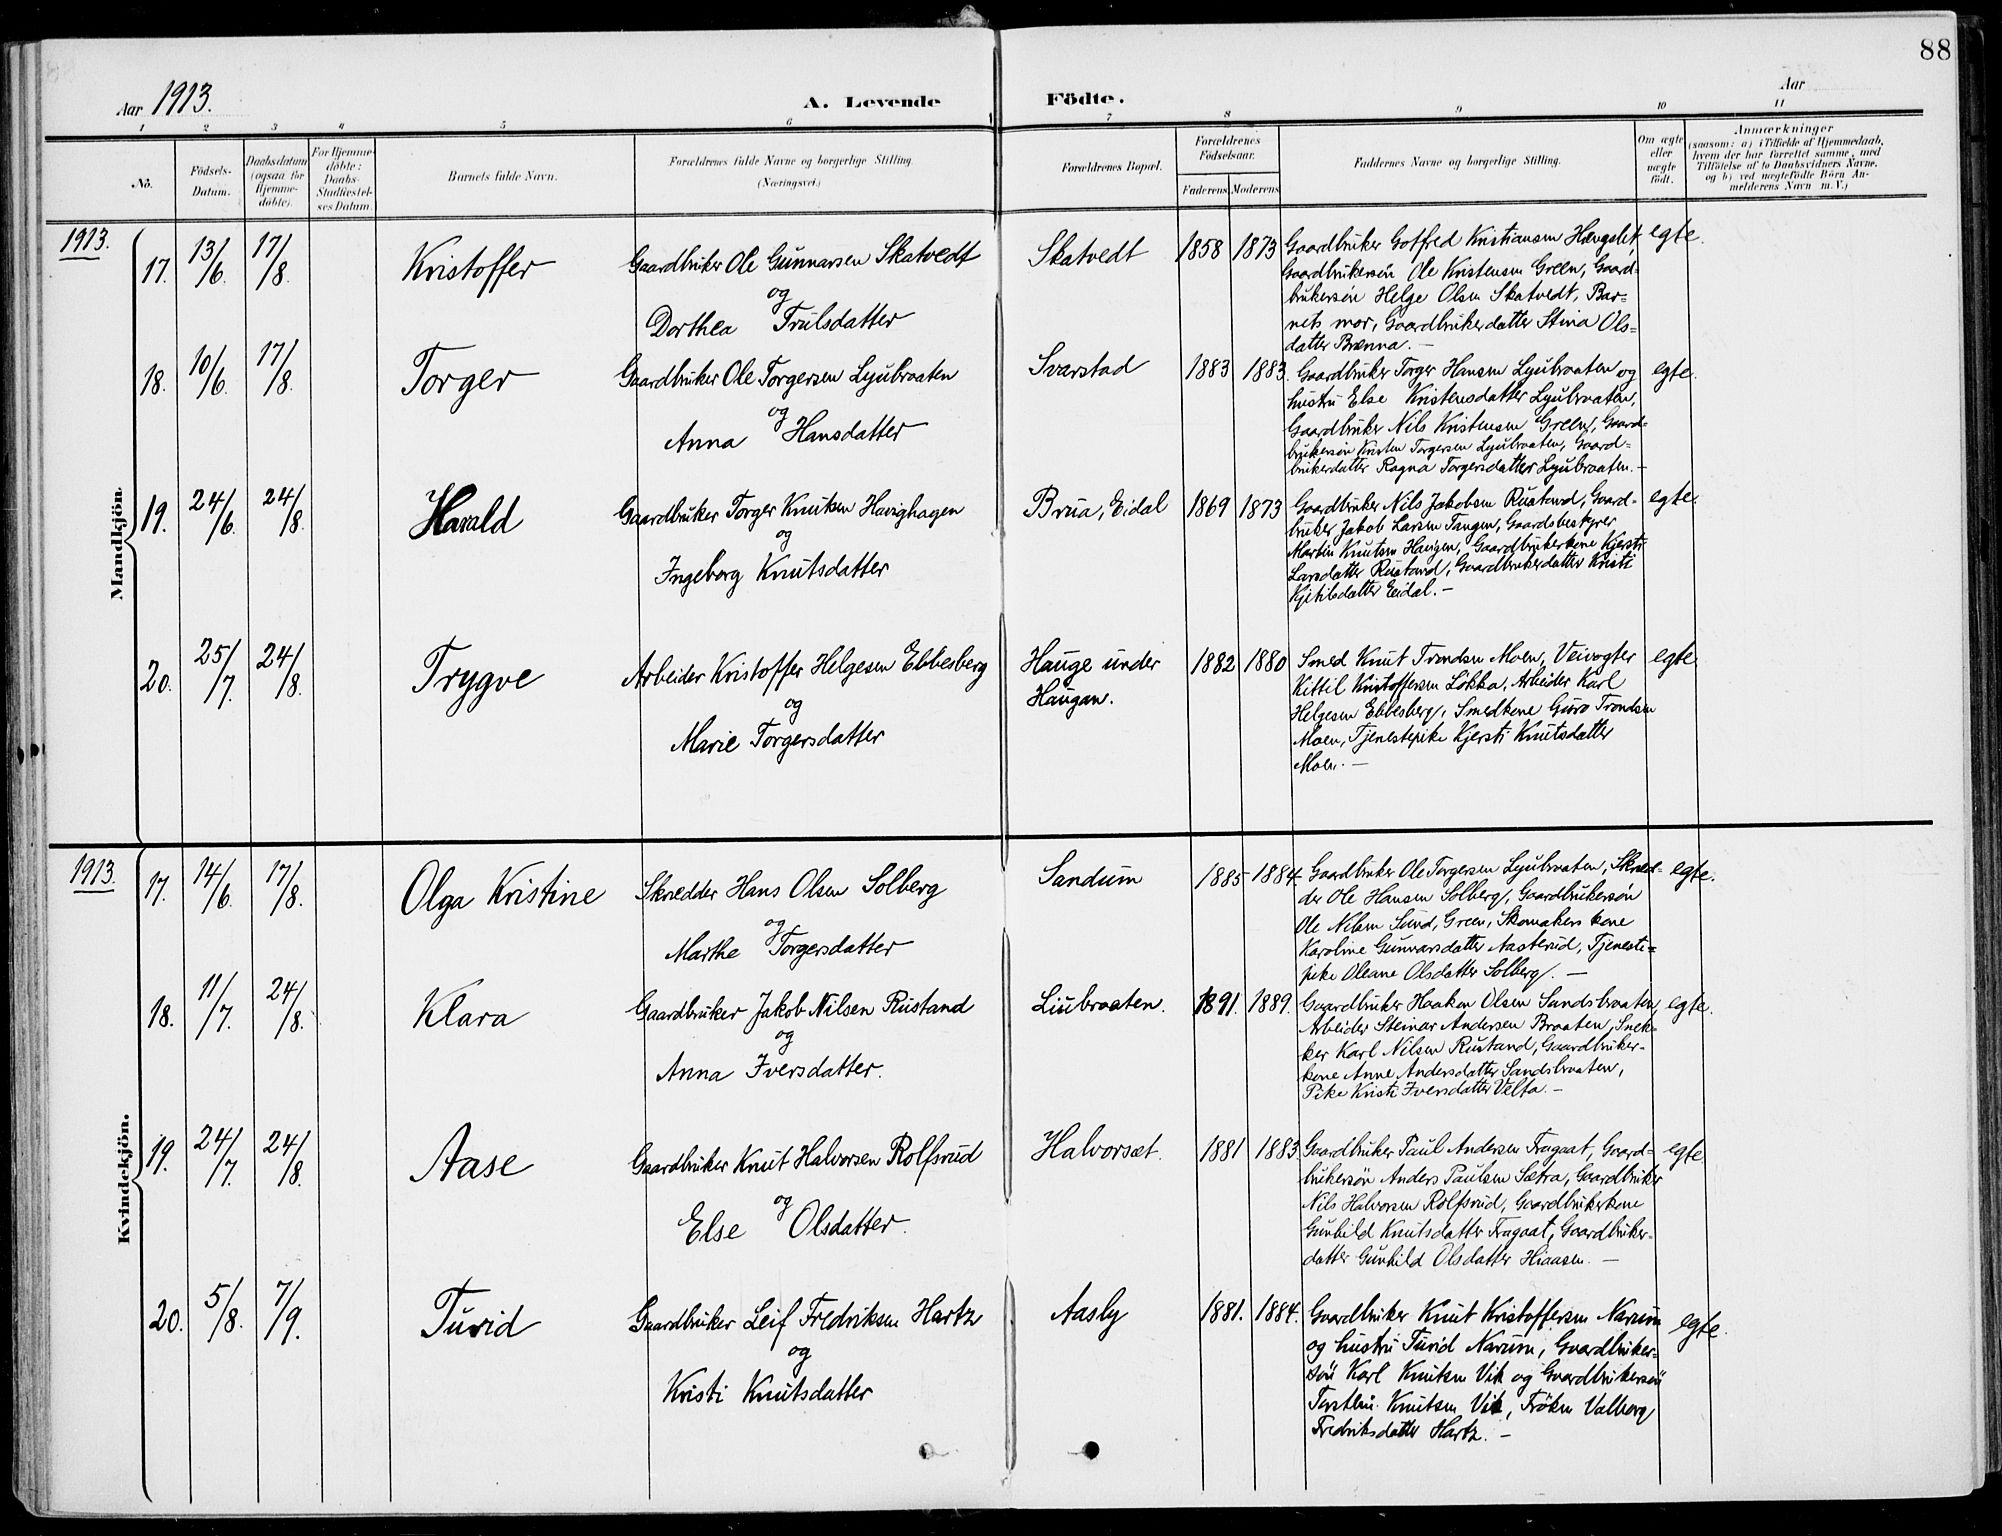 88
Aar 1913.
A. Levende Födte.
Aar
1 2 3 4 5 6 7 8 9 10 11
No.
Födsels-Datum.
Daabsdatum (ogsaa for Hjemmedöbte).
For Hjemmedöbte: Daabs-Stadfæstelses Datum.
Barnets fulde Navn.
Forældrenes fulde Navne og borgerlige Stilling.
(Næringsvei.)
Forældrenes Bopæl.
Forældrenes Fødselsaar.
Faderens Moderens
Faddernes Navne og borgerlige Stilling.
Om ægte eller uægte födt.
Anmærkninger
(saasom: a) i Tilfælde af Hjemmedaab,
hvem der har forrettet samme, med
Tilföielse af to Daabsvidners Navne,
og b) ved uægtefödte Börn Anmelderens Navn m. V.)
Mandkjön.
1913.
17. 13/6. 17/8. Kristoffer
Gaardbruker Ole Gunnarsen Skatvedt
og
Dorthea Trulsdatter
Skatvedt 1858 1873
Gaardbruker Goffred Kristiansen Hængslet,
Gaardbrukersön Ole Kristensen Green, Gaard=
brukersön Helge Olsen Skatvedt, Bar=
nets mor, Gaardbrukerdatter Stina Ols=
datter Brænna. —
egte.
18. 10/6. 17/8. Torger
Gaardbruker Ole Torgersen Lyubraaten
og
Anna Hansdatter
Svarstad 1883 1883.
Gaardbruker Torger Hansen Lyubraaten og
hustru Else Kristensdatter Lyubraaten,
Gaardbruker Nils Kristensen Green, Gaard=
brukersön Kristen Torgersen Lyubraaten, Gaard=
brukerdatter Ragna Torgersdatter Lyubraaten. —
egte.
19. 24/6. 24/8. Harald
Gaardbruker Torger Knutsen Havighagen
og
Ingeborg Knutsdatter
Brua, Eidal 1869 1873
Gaardbruker Nils Jakobsen Rustand, Gaard=
bruker Jakob Larsen Tangen, Gaardsbestyrer
Martin Knutsen Haugen, Gaardbrukerkone Kjersti
Larsdatter Rustand, Gaardbrukerdatter Kristi
Kjetilsdatter Eidal. —
egte.
20. 25/7. 24/8. Trygve
Arbeider Kristoffer Helgesen Ebbesberg
og
Marie Torgersdatter
Hauge under
Haugan.
1882 1880
Smed Knut Trondsen Moen, Veivogter
Kittil Kristoffersen Lökka, Arbeider Karl
Helgesen Ebbesberg, Smedkone Guro Trondsen
Moen, Tjenestepike Kjersti Knutsdatter
Moen. —
egte.
Kvindekjön.
1913.
17. 14/6. 17/8. Olga Kristine
Skrædder Hans Olsen Solberg
og
Marthe Torgersdatter
Sandum 1885 1884.
Gaardbruker Ole Torgersen Lyubraaten, Skræd=
der Ole Hansen Solberg, Gaardbrukersön
Ole Nilsen Sund, Green, Skomakers kone
Karoline Gunnarsdatter Aasterud, Tjeneste=
pike Oleane Olsdatter Solberg. —
egte.
18. 11/7. 24/8. Klara
Gaardbruker Jakob Nilsen Rustand
og
Anna Iversdatter.
Liubraaten. 1891. 1889.
Gaardbruker Haaken Olsen Sandsbraaten,
Arbeider Steinar Andersen Braaten, Snek=
ker Karl Nilsen Rustand, Gaardbruker=
kone Anne Andersdatter Sandsbraaten,
Pike Kristi Iversdatter Velta. —
egte.
19. 24/7. 24/8. Aase
Gaardbruker Knut Halvorsen Rolfsrud
og
Else Olsdatter.
Halvorset. 1881 1883
Gaardbruker Paul Andersen Fragaat, Gaard=
brukersön Anders Paulsen Sætra, Gaardbruker
Nils Halvorsen Rolfsrud, Gaardbrukerkone
Gunhild Knutsdatter Fragaat, Gaardbruker=
datter Gunhild Olsdatter Hiaasen. —
egte.
20. 5/8. 7/9. Turid
Gaardbruker Leif Fredriksen Hartz
og
Kristi Knutsdatter
Aasly 1881. 1884.
Gaardbruker Knut Kristoffersen Narum
og hustru Turid Narum, Gaardbruker=
sön Karl Knutsen Vik og Gaardbrukersön
Torstein Knutsen Vik, Fröken Valborg
Fredriksdatter Hartz. —
egte.